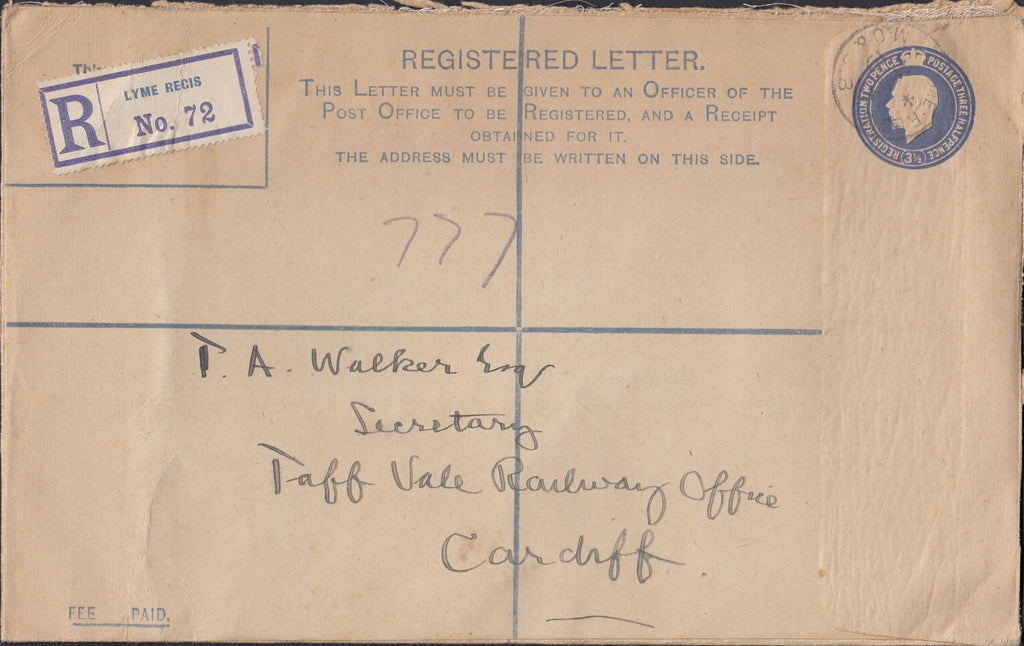 REGISTERED LETTER.
THIS LETTER MUST BE GIVEN TO AN OFFICER OF THE
POST OFFICE TO BE REGISTERED, AND A RECEIPT
OBTAINED FOR IT.
THE ADDRESS MUST BE WRITTEN ON THIS SIDE.
R
LYME REGIS
No. 72
REGISTRATION TWO PENCE POSTAGE THREE HALFPENCE (3½)
777
T. A. Walker Esq
Secretary
Taff Vale Railway Office
Cardiff
FEE PAID.